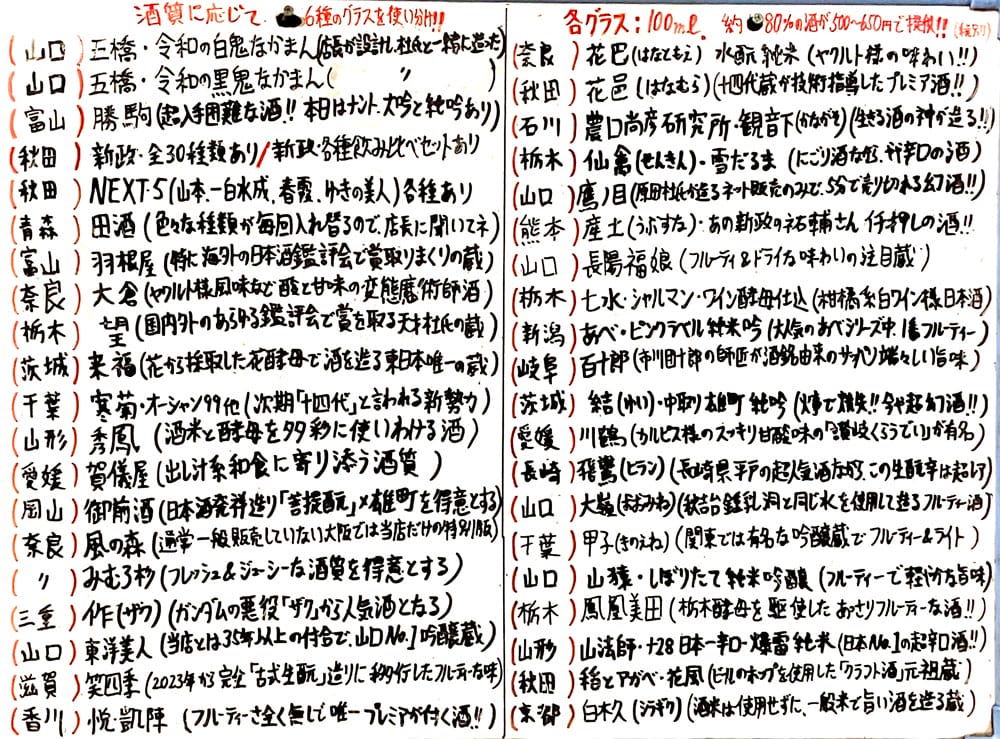 酒質に応じて 6種のグラスを使い分け!!
(山口) 五橋・令和の白鬼なかまん(店長が設計し杜氏と一緒に造った)
(山口) 五橋・令和の黒鬼なかまん( 〃 )
(富山) 勝駒(超入手困難な酒!! 本日はナント、大吟と純吟あり)
(秋田) 新政・全30種類あり/新政・各種飲み比べセットあり
(秋田) NEXT・5(山本、一白水成、春霞、ゆきの美人)各種あり
(青森) 田酒(色々な種類が毎回入れ替るので、店長に聞いてネ)
(富山) 羽根屋(特に海外の日本酒鑑評会で賞取りまくりの蔵)
(奈良) 大倉(ヤクルト様風味など酸と甘味の変態魔術師酒)
(栃木) 望(国内外のあらゆる鑑評会で賞を取る天才杜氏の蔵)
(茨城) 来福(花から採取した花酵母で酒を造る東日本唯一の蔵)
(千葉) 寒菊・オーシャン99他(次期「十四代」と言われる新勢力)
(山形) 秀鳳(酒米と酵母を多彩に使いわける酒)
(愛媛) 賀儀屋(出し汁系和食に寄り添う酒質)
(岡山) 御前酒(日本酒発祥造り「菩提酛」と雄町を得意とする)
(奈良) 風の森(通常一般販売していない大阪では当店だけの特別版)
( 〃 ) みむろ杉(フレッシュ&ジューシーな酒質を得意とする)
(三重) 作(ザク)(ガンダムの悪役「ザク」から人気酒となる)
(山口) 東洋美人(当店とは35年以上の付合で、山口No.1吟醸蔵)
(滋賀) 笑四季(2023年から完全「古式生酛」造りに移行したフルーティーな味)
(香川) 悦凱陣(フルーティーさ全く無しで唯一プレミアが付く酒!!)
各グラス:100ml. 約 80%の酒が500〜650円で提供!!(税別)
(奈良) 花巴(はなともえ) 水酛純米(ヤクルト様の味わい!!)
(秋田) 花邑(はなむら)(十四代蔵が技術指導したプレミア酒!!)
(石川) 農口尚彦研究所・観音下(かながそ)(生きる酒の神が造る!!)
(栃木) 仙禽(せんきん)・雪だるま(にごり酒ながら、辛口の酒)
(山口) 鷹ノ目(原田杜氏が造るネット販売のみで、5分で売り切れる幻酒!!)
(熊本) 産土(うぶすな)・あの新政の祐輔さんイチ押しの酒!!
(山口) 長陽福娘(フルーティ&ドライな味わいの注目蔵)
(栃木) 七水・シャルマン・ワイン酵母仕込(柑橘系白ワイン様日本酒)
(新潟) あべ・ピンクラベル純米吟(大人気のあべシリーズ中、1番フルーティー)
(岐阜) 百十郎(市川団十郎の師匠が酒銘由来のサッパリ瑞々しい旨味)
(茨城) 結(ゆい)・中取り雄町純吟(火事で焼失!!今や超幻酒!!)
(愛媛) 川鶴(カルピス様のスッキリ甘酸味の「讃岐くらうでぃ」が有名)
(長崎) 飛鸞(ヒラン)(長崎県平戸の超人気酒ながら、この生酛辛は超レア)
(山口) 大嶺(おおみね)(秋吉台鍾乳洞と同じ水を使用して造るフルーティー酒)
(千葉) 甲子(きのえね)(関東では有名な吟醸蔵でフルーティー&ライト)
(山口) 山猿・しぼりたて純米吟醸(フルーティーで軽やかな旨味)
(栃木) 鳳凰美田(栃木酵母を駆使したあさりフルーティーな酒!!)
(山形) 山法師・+28日本一辛口・爆雷純米(日本No.1の超辛口酒!!)
(秋田) 稲とアガベ・花風(ビールのホップを使用した「クラフト酒」元祖蔵)
(京都) 白木久(シラギク)(酒米は使用せずに、一般米で旨い酒を造る蔵)